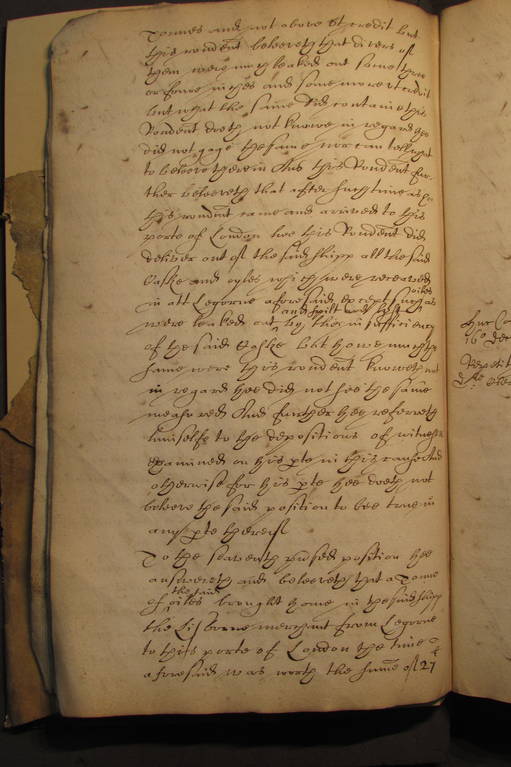 Tonnes and not above et credit but
this rendent beleeveth that divers of
them were much leaked out some three
or foure inches and some more et credit
but what the same did containe this
Rendent doeth not knowe in regard hee
did not gage the same nor can tell what
to beleeve therein And this Rendent fur-
ther beleeveth that after such tyme as
this rendent came and arrived to this
porte of London hee this Rendent did
deliver out of the said shipp all the said
Caske and oyles which were received
in att Legorne aforesaid except such oiles as
were leaked out and spilt and lost by the insufficiency
of the said Caske but howe much the
same were this rendent knoweth not
in regard hee did not see the same
measured And further hee referreth
himselfe to the depositions of witnesses
examined on his pte in this cause And
otherwise for his pte hee doeth not
beleeve the said position to bee true in
any pte thereof
To the seaventh posed position hee
answereth and beleeveth that a Tonne
of the said oiles brought home in the said shipp
the Lisborne merchant from Legorne
to this porte of London the time
aforesaid was worth the summe of 27
16o
Repetit